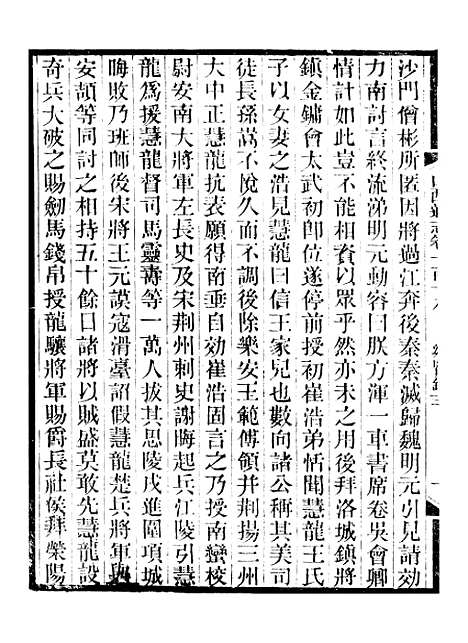 沙門僧彬所匿因將過江奔後秦秦滅歸魏明元引見請効
力南討言終流涕明元動容曰朕方渾一車書席卷吳會卿
情計如此豈不能相資以眾乎然亦未之用後拜洛城鎮將
鎮金鏞會太武初即位遂停前授初崔浩弟恬聞慧龍王氏
子以女妻之浩見慧龍曰信王家兒也數向諸公稱其美司
徒長孫嵩不悅久而不調後除樂安王範傅領并荆揚三州
大中正慧龍抗表願得南垂自効崔浩固言之乃授南蠻校
尉安南大將軍左長史及宋荆州刺史謝晦起兵江陵引慧
龍為援慧龍督司馬靈壽等一萬人拔思陵戍進圍項城
晦敗乃班師後宋將王元謨寇滑臺詔假慧龍楚兵將軍與
安頡等同討之相持五十餘日諸將以賊盛莫敢先慧龍設
奇兵大破之賜劒馬錢帛授龍驤將軍賜爵長社侯拜滎陽